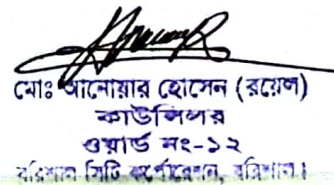 মোঃ আনোয়ার হোসেন (রয়েল)
কাউন্সিলর
ওয়ার্ড নং-১২
বরিশাল সিটি কর্পোরেশন, বরিশাল।